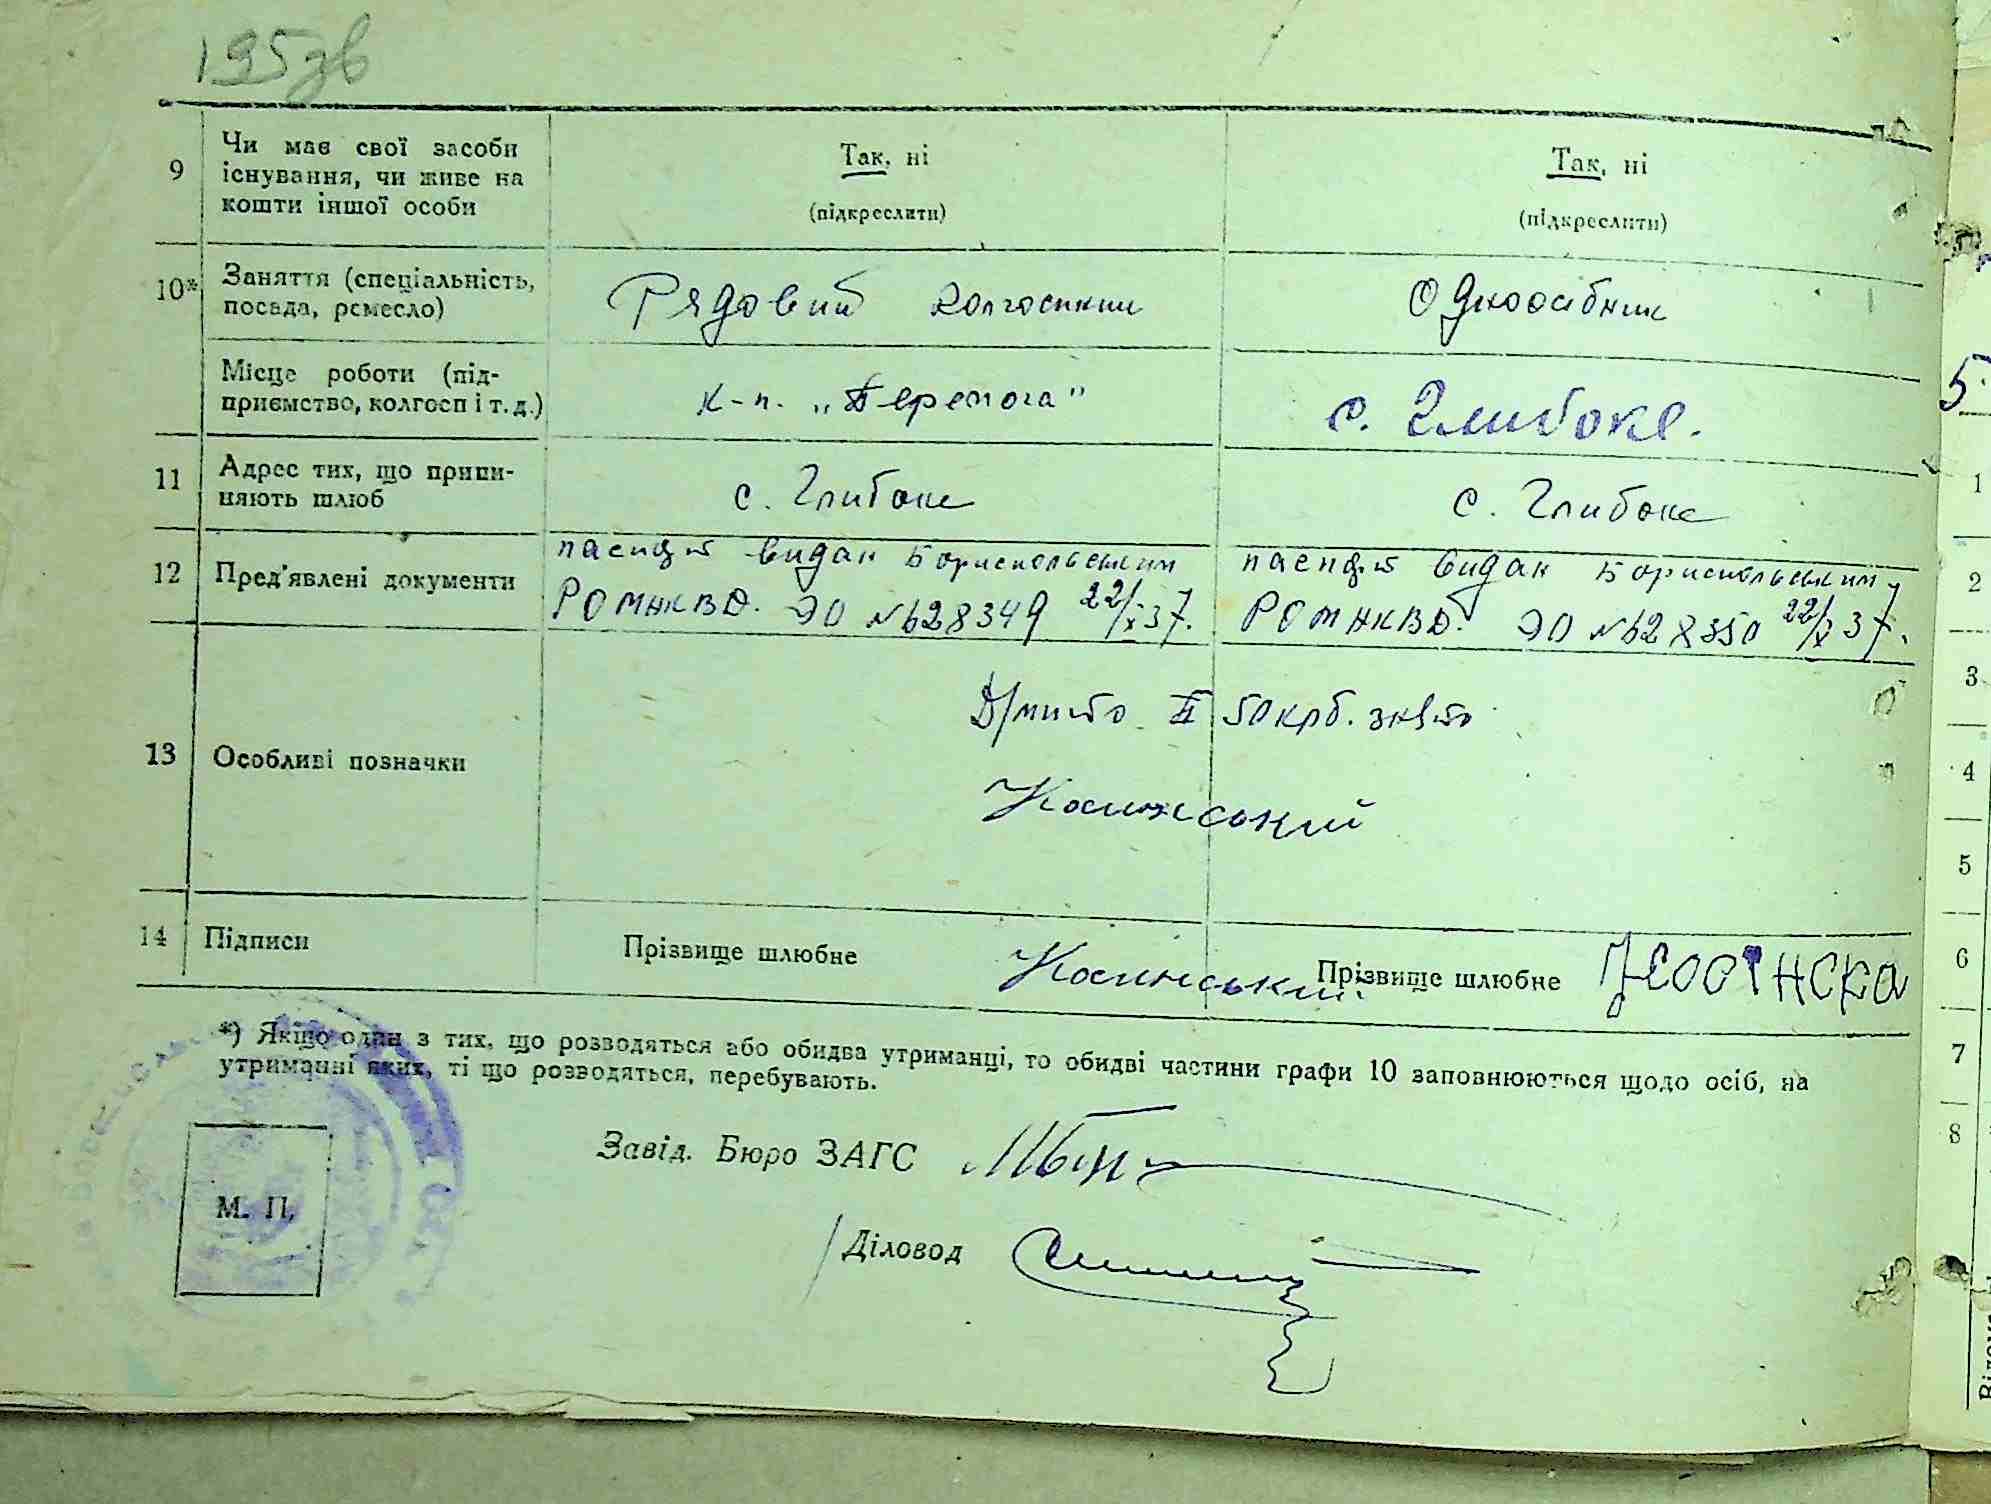 195зв
9
Чи має свої засоби
існування, чи живе на
кошти іншої особи
Так, ні
(підкреслити)
Так, ні
(підкреслити)
10*
Заняття (спеціальність,
посада, ремесло)
Рядовий колгоспник
Одноосібник
Місце роботи (під-
приємство, колгосп і т. д.)
к-п. „Перемога"
с. Глибоке.
11
Адрес тих, що припи-
няють шлюб
с. Глибоке
с. Глибоке
12
Пред'явлені документи
паспорт видан Бориспольським
РОМНКВД. ЭО №628349 22/X 37.
паспорт видан Бориспольським
РОМНКВД. ЭО №628350 22/X 37.
13
Особливі позначки
50 крб.
14
Підписи
Прізвище шлюбне
Косинський
Прізвище шлюбне
*) Якщо один з тих, що розводяться або обидва утриманці, то обидві частини графи 10 заповнюються щодо осіб, на
утриманні яких, ті що розводяться, перебувають.
М. П.
Завід. Бюро ЗАГС
Діловод
5.
1
2
3
4
5
6
7
8